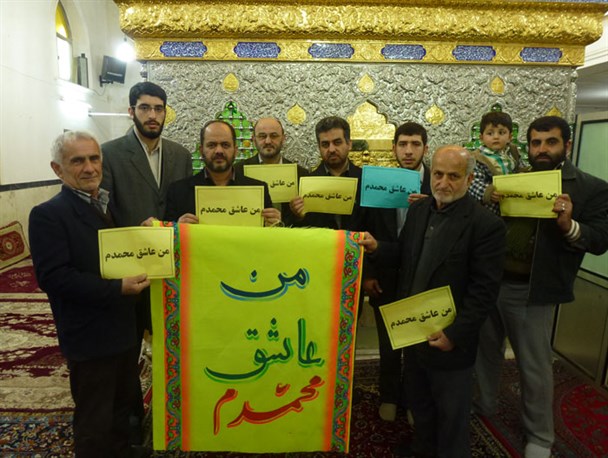 من عاشق محمدم
من عاشق محمدم
من عاشق محمدم
من عاشق محمدم
من عاشق محمدم
من عاشق محمدم
من
عاشق
محمدم
من عاشق محمدم